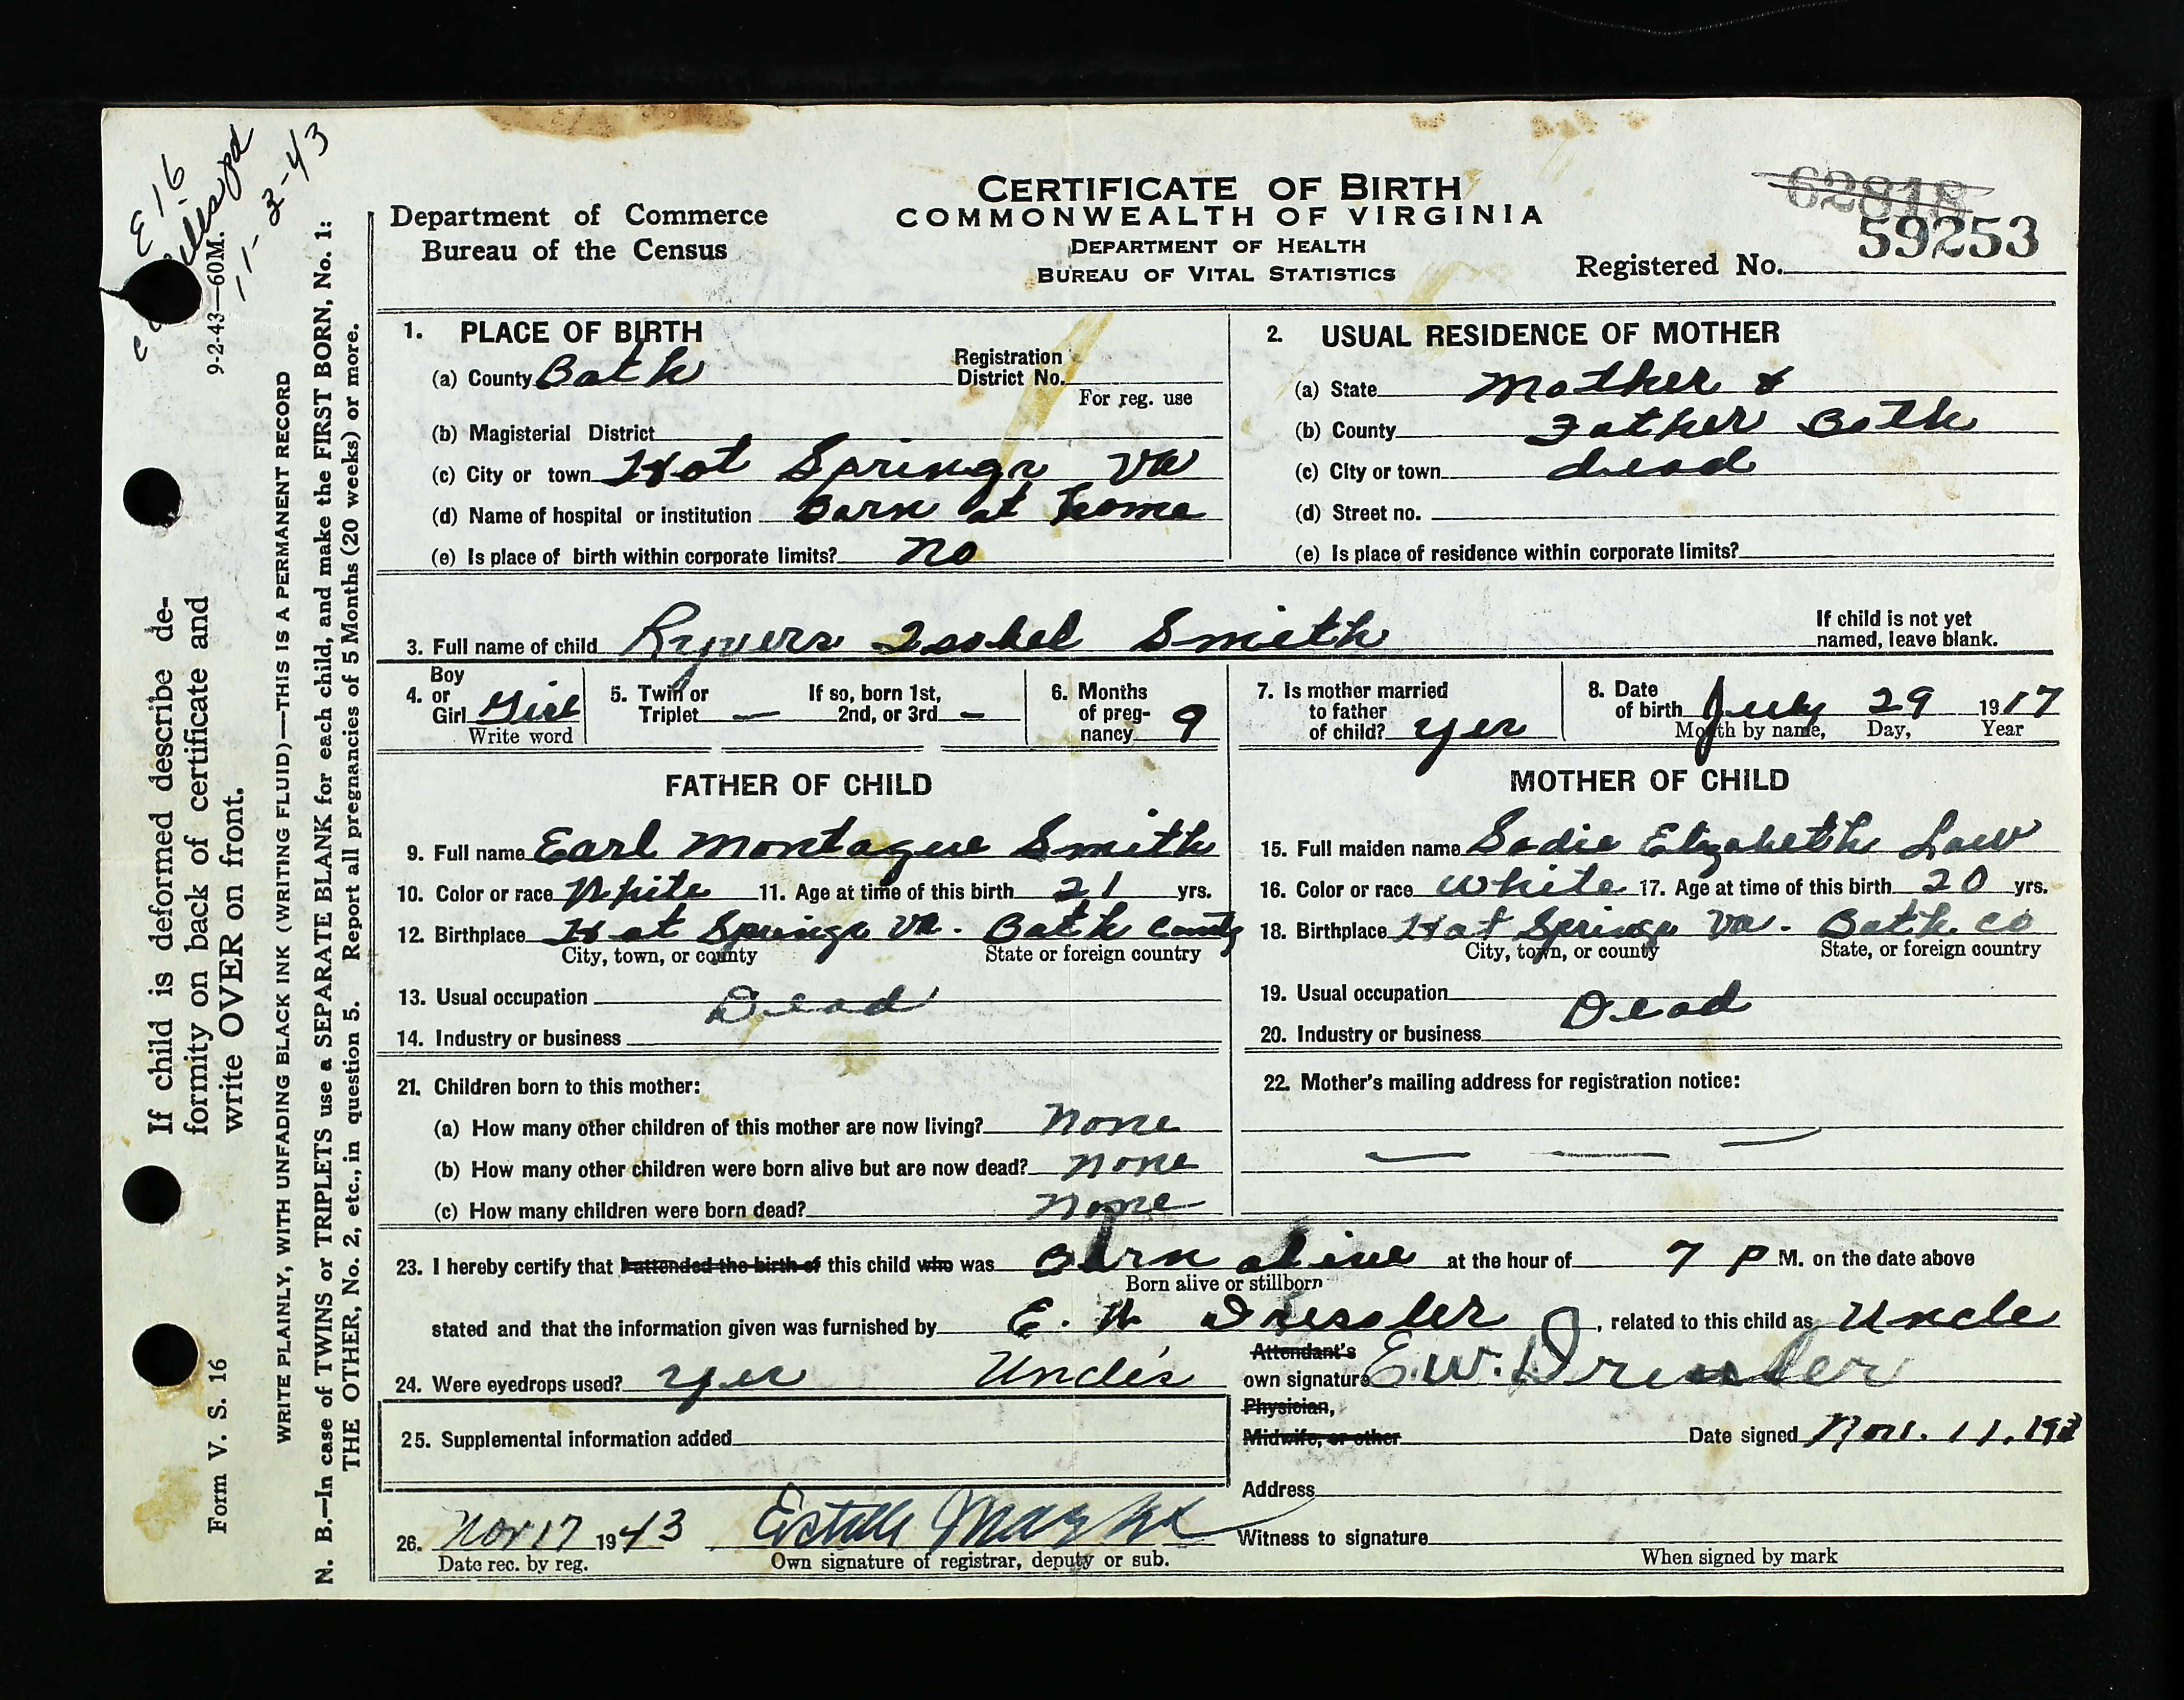 E 16
9-2-43—60M.
11-3-43
CERTIFICATE OF BIRTH
COMMONWEALTH OF VIRGINIA
DEPARTMENT OF HEALTH
BUREAU OF VITAL STATISTICS
Department of Commerce
Bureau of the Census
62818
59253
Registered No.
1. PLACE OF BIRTH
(a) County Bath Registration District No.
For reg. use
(b) Magisterial District
(c) City or town Hot Springs Va
(d) Name of hospital or institution Born at home
(e) Is place of birth within corporate limits? no
2. USUAL RESIDENCE OF MOTHER
(a) State Mother &
(b) County Father Both
(c) City or town dead
(d) Street no.
(e) Is place of residence within corporate limits?
3. Full name of child Ryvers Isobel Smith If child is not yet named, leave blank.
4. Boy or Girl Girl
Write word
5. Twin or Triplet — If so, born 1st, 2nd, or 3rd —
6. Months of pregnancy 9
7. Is mother married to father of child? yes
8. Date of birth July 29 1917
Month by name, Day, Year
FATHER OF CHILD
9. Full name Earl Montague Smith
10. Color or race White 11. Age at time of this birth 21 yrs.
12. Birthplace Hot Springs Va. Bath County
City, town, or county State or foreign country
13. Usual occupation Dead
14. Industry or business
MOTHER OF CHILD
15. Full maiden name Sadie Elizabeth Law
16. Color or race White 17. Age at time of this birth 20 yrs.
18. Birthplace Hot Springs Va. Bath Co
City, town, or county State, or foreign country
19. Usual occupation Dead
20. Industry or business
21. Children born to this mother:
(a) How many other children of this mother are now living? None
(b) How many other children were born alive but are now dead? none
(c) How many children were born dead? None
22. Mother's mailing address for registration notice:
— — —
23. I hereby certify that I attended the birth of this child who was Born alive at the hour of 7 P M. on the date above
Born alive or stillborn
stated and that the information given was furnished by E. W Dressler, related to this child as Uncle
24. Were eyedrops used? yes Uncle's
Attendant's own signature E.W. Dressler
Physician,
Midwife, or other Date signed Nov. 11, 194
25. Supplemental information added
Address
26. Nov 17 1943
Date rec. by reg. Own signature of registrar, deputy or sub.
Witness to signature
When signed by mark
If child is deformed describe de-
formity on back of certificate and
write OVER on front.
WRITE PLAINLY, WITH UNFADING BLACK INK (WRITING FLUID)—THIS IS A PERMANENT RECORD
N. B.—In case of TWINS or TRIPLETS use a SEPARATE BLANK for each child, and make the FIRST BORN, No. 1:
THE OTHER, No. 2, etc., in question 5. Report all pregnancies of 5 Months (20 weeks) or more.
Form V. S. 16